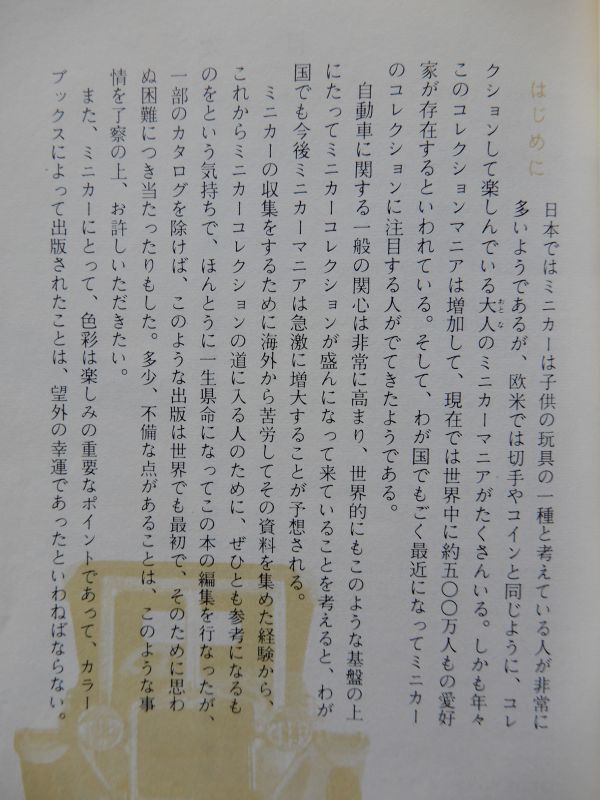 はじめに
日本ではミニカーは子供の玩具の一種と考えている人が非常に
多いようであるが、欧米では切手やコインと同じように、コレ
クションして楽しんでいる大人のミニカーマニアがたくさんいる。しかも年々
おとな
このコレクションマニアは増加して、現在では世界中に約五〇〇万人もの愛好
家が存在するといわれている。そして、わが国でもごく最近になってミニカー
のコレクションに注目する人がでてきたようである。
自動車に関する一般の関心は非常に高まり、世界的にもこのような基盤の上
にたってミニカーコレクションが盛んになって来ていることを考えると、わが
国でも今後ミニカーマニアは急激に増大することが予想される。
ミニカーの収集をするために海外から苦労してその資料を集めた経験から、
これからミニカーコレクションの道に入る人のために、ぜひとも参考になるも
のをという気持ちで、ほんとうに一生県命になってこの本の編集を行なったが、
一部のカタログを除けば、このような出版は世界でも最初で、そのために思わ
ぬ困難につき当たったりもした。多少、不備な点があることは、このような事
情を了察の上、お許しいただきたい。
また、ミニカーにとって、色彩は楽しみの重要なポイントであって、カラー
ブックスによって出版されたことは、望外の幸運であったといわねばならない。